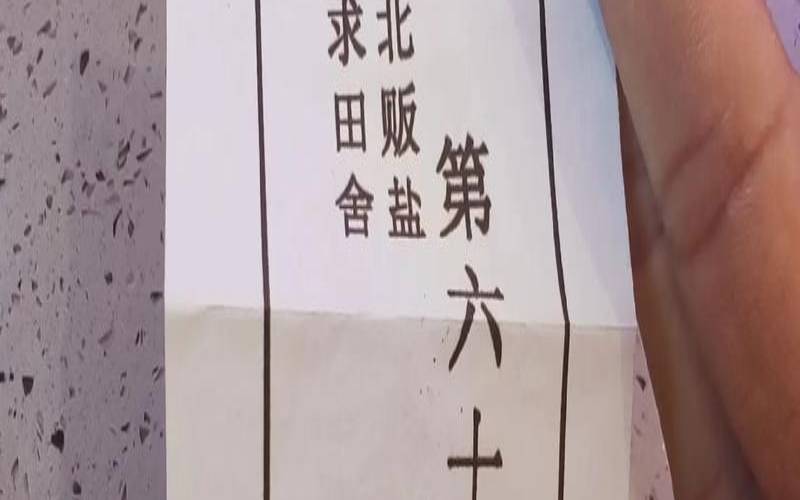 第六十
北贩盐
求田舍